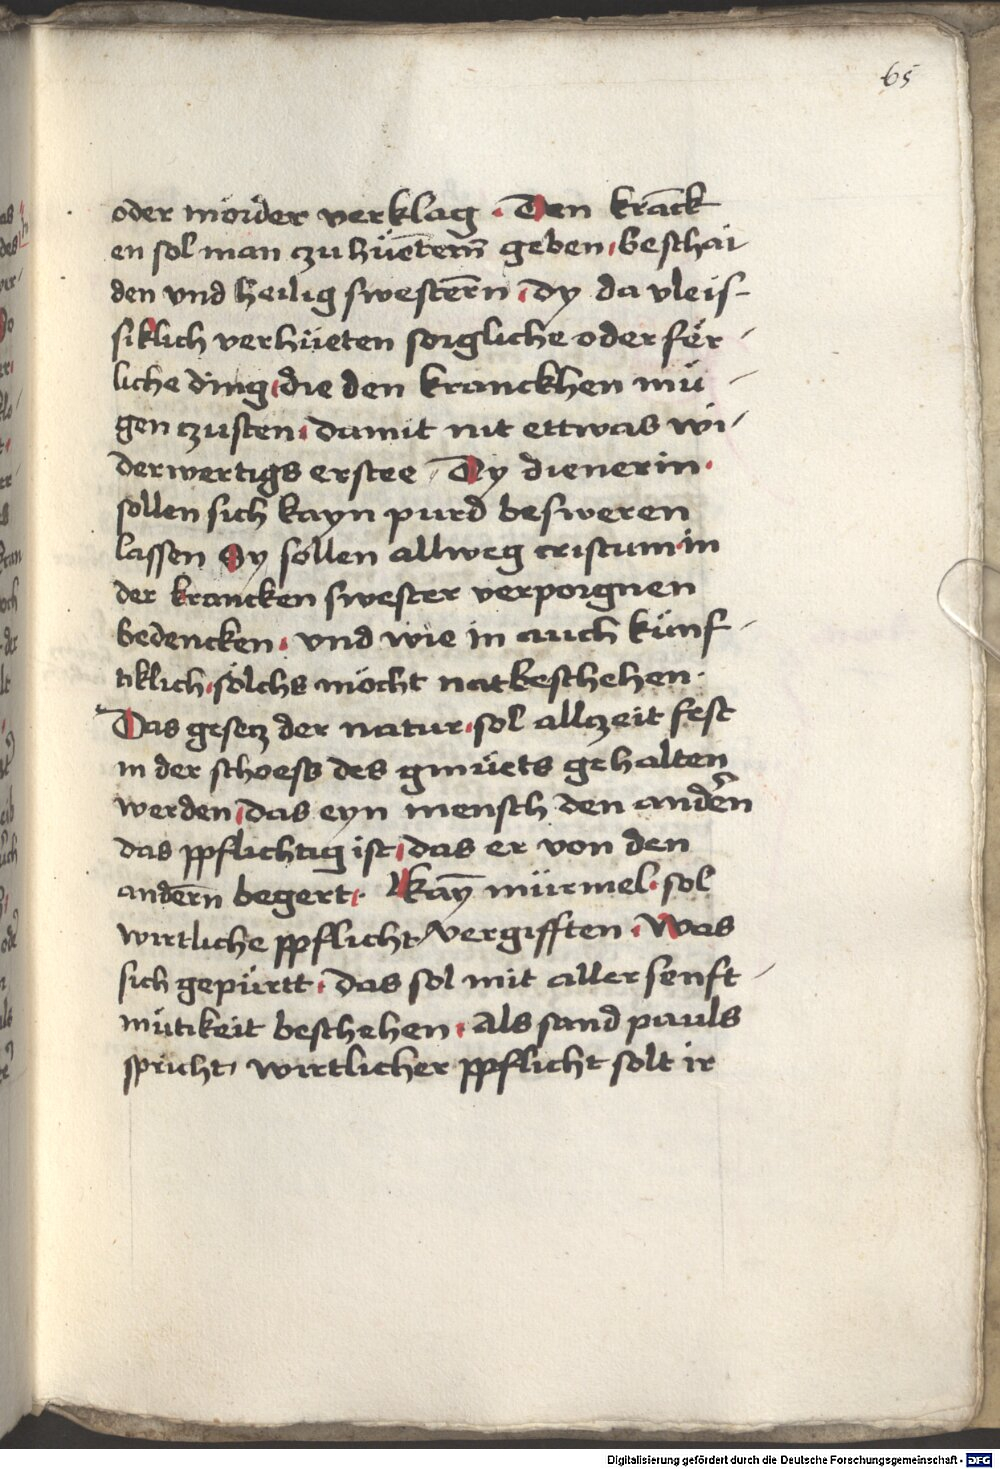 65
oder mörder verklag · Den kranck
en sol man zu hüetern geben · beschai
den vnd heilig swestern · dy da vleis-
siklich verhüeten sorgliche oder fër-
liche ding · die den kranckhen mü-
gen zusten · damit nit ettwas wi-
derwertigs erstee · Dy dienerin ·
sollen sich kayn purd besweren
lassen Sy sollen allweg cristum in
der krancken swester verporgnen
bedencken · vnd wie in auch künf-
tiklich · sölchs möcht nat beschehen ·
Das gesetz der natur · sol allzeit fest
in der schoess des gmüets gehalten
werden · das eyn mensch den andern
das ppflichtig ist · das er von den
andern begert · kayn mürmel · sol
wirtliche ppflicht vergifften · Was
sich gepürtt · das sol mit aller senft-
mütikeit beschehen · Als sand pauls
spricht · wirtlicher ppflicht solt ir
Digitalisierung gefördert durch die Deutsche Forschungsgemeinschaft - DFG